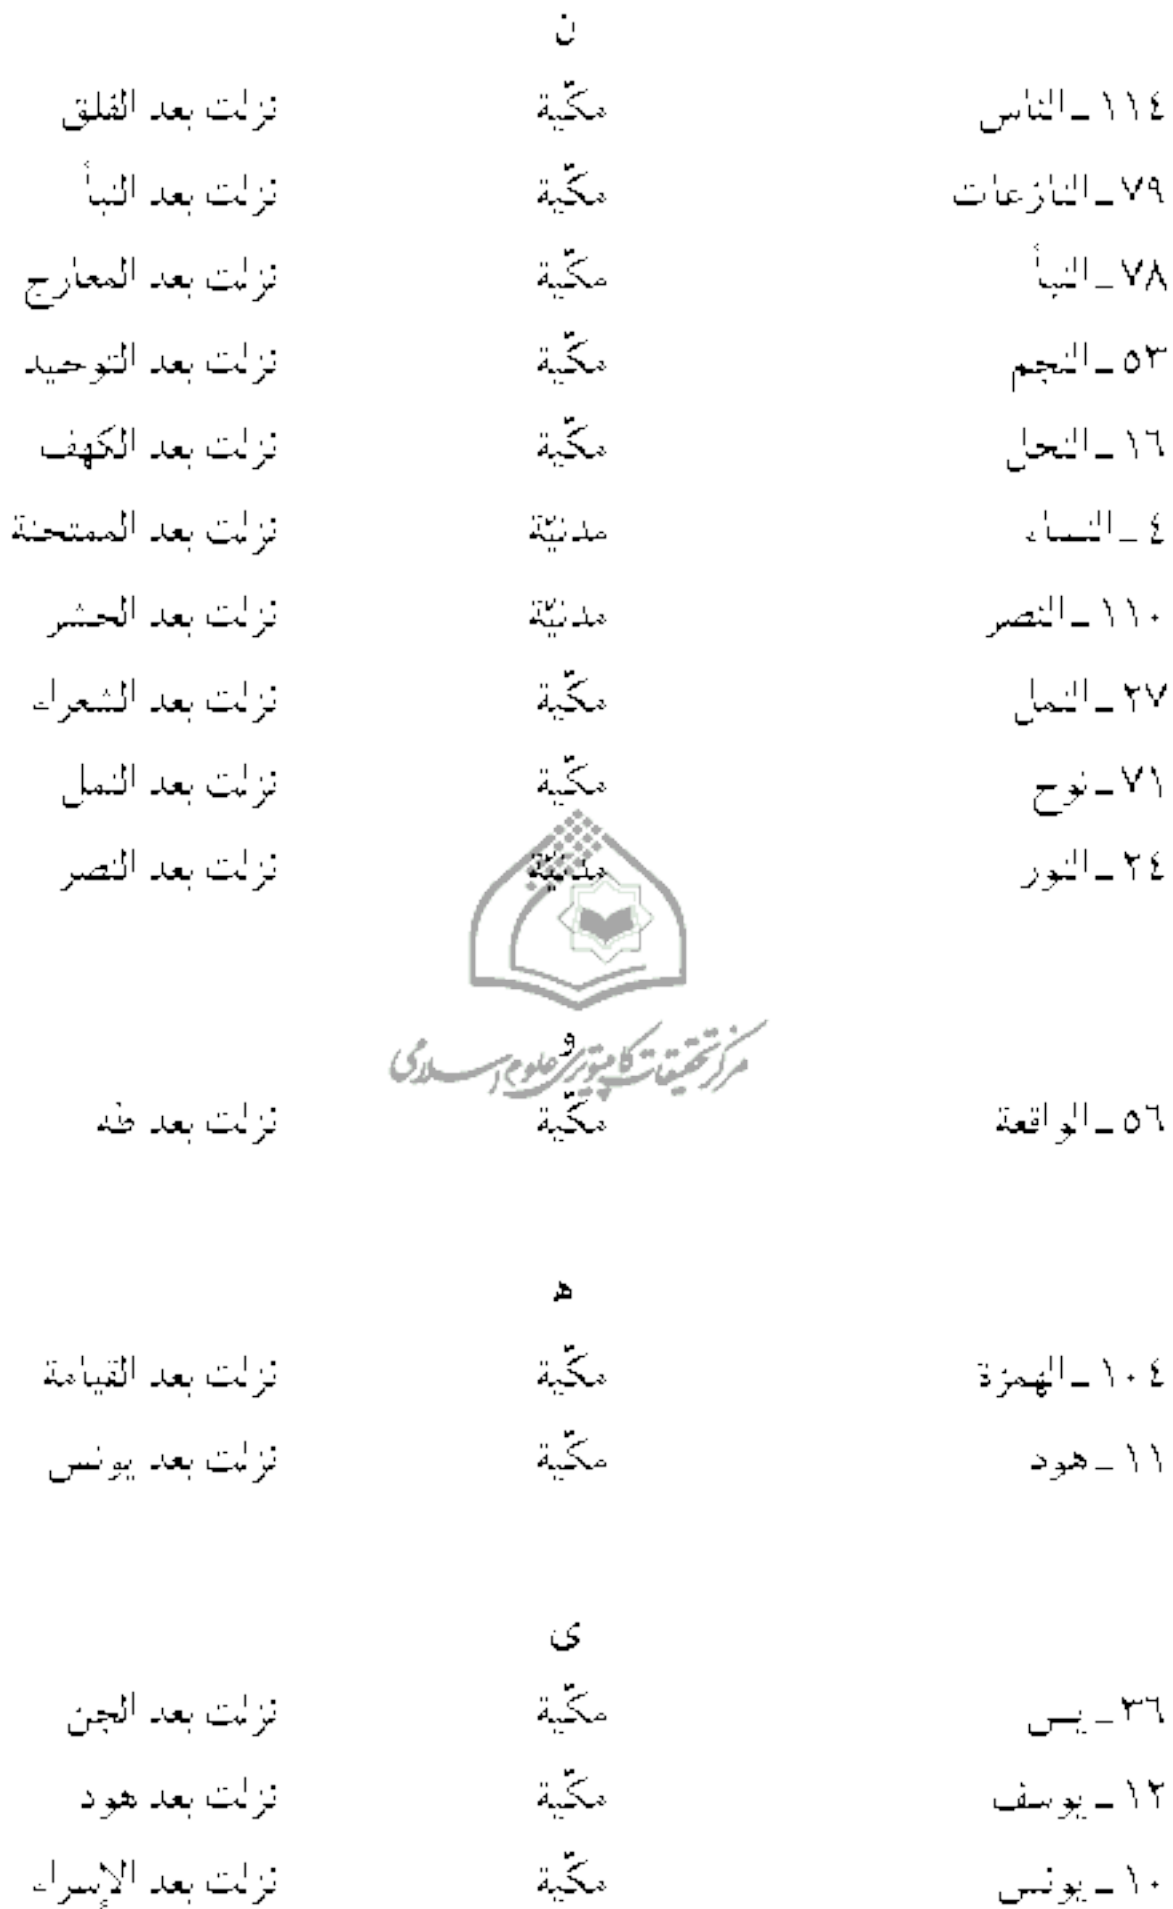 ن
١١٤ ـ الناس مكّية نزلت بعد الفلق
٧٩ ـ النازعات مكّية نزلت بعد النبأ
٧٨ ـ النبأ مكّية نزلت بعد المعارج
٥٣ ـ النجم مكّية نزلت بعد التوحيد
١٦ ـ النحل مكّية نزلت بعد الكهف
٤ ـ النساء مدنيّة نزلت بعد الممتحنة
١١٠ ـ النصر مدنيّة نزلت بعد الحشر
٢٧ ـ النمل مكّية نزلت بعد الشعراء
٧١ ـ نوح مكّية نزلت بعد النمل
٢٤ ـ النور مدنيّة نزلت بعد النصر
و
مرکز تحقیقات کامپیوتری علوم اسلامی
٥٦ ـ الواقعة مكّية نزلت بعد طه
ه
١٠٤ ـ الهمزة مكّية نزلت بعد القيامة
١١ ـ هود مكّية نزلت بعد يونس
ى
٣٦ ـ يس مكّية نزلت بعد الجن
١٢ ـ يوسف مكّية نزلت بعد هود
١٠ ـ يونس مكّية نزلت بعد الإسراء